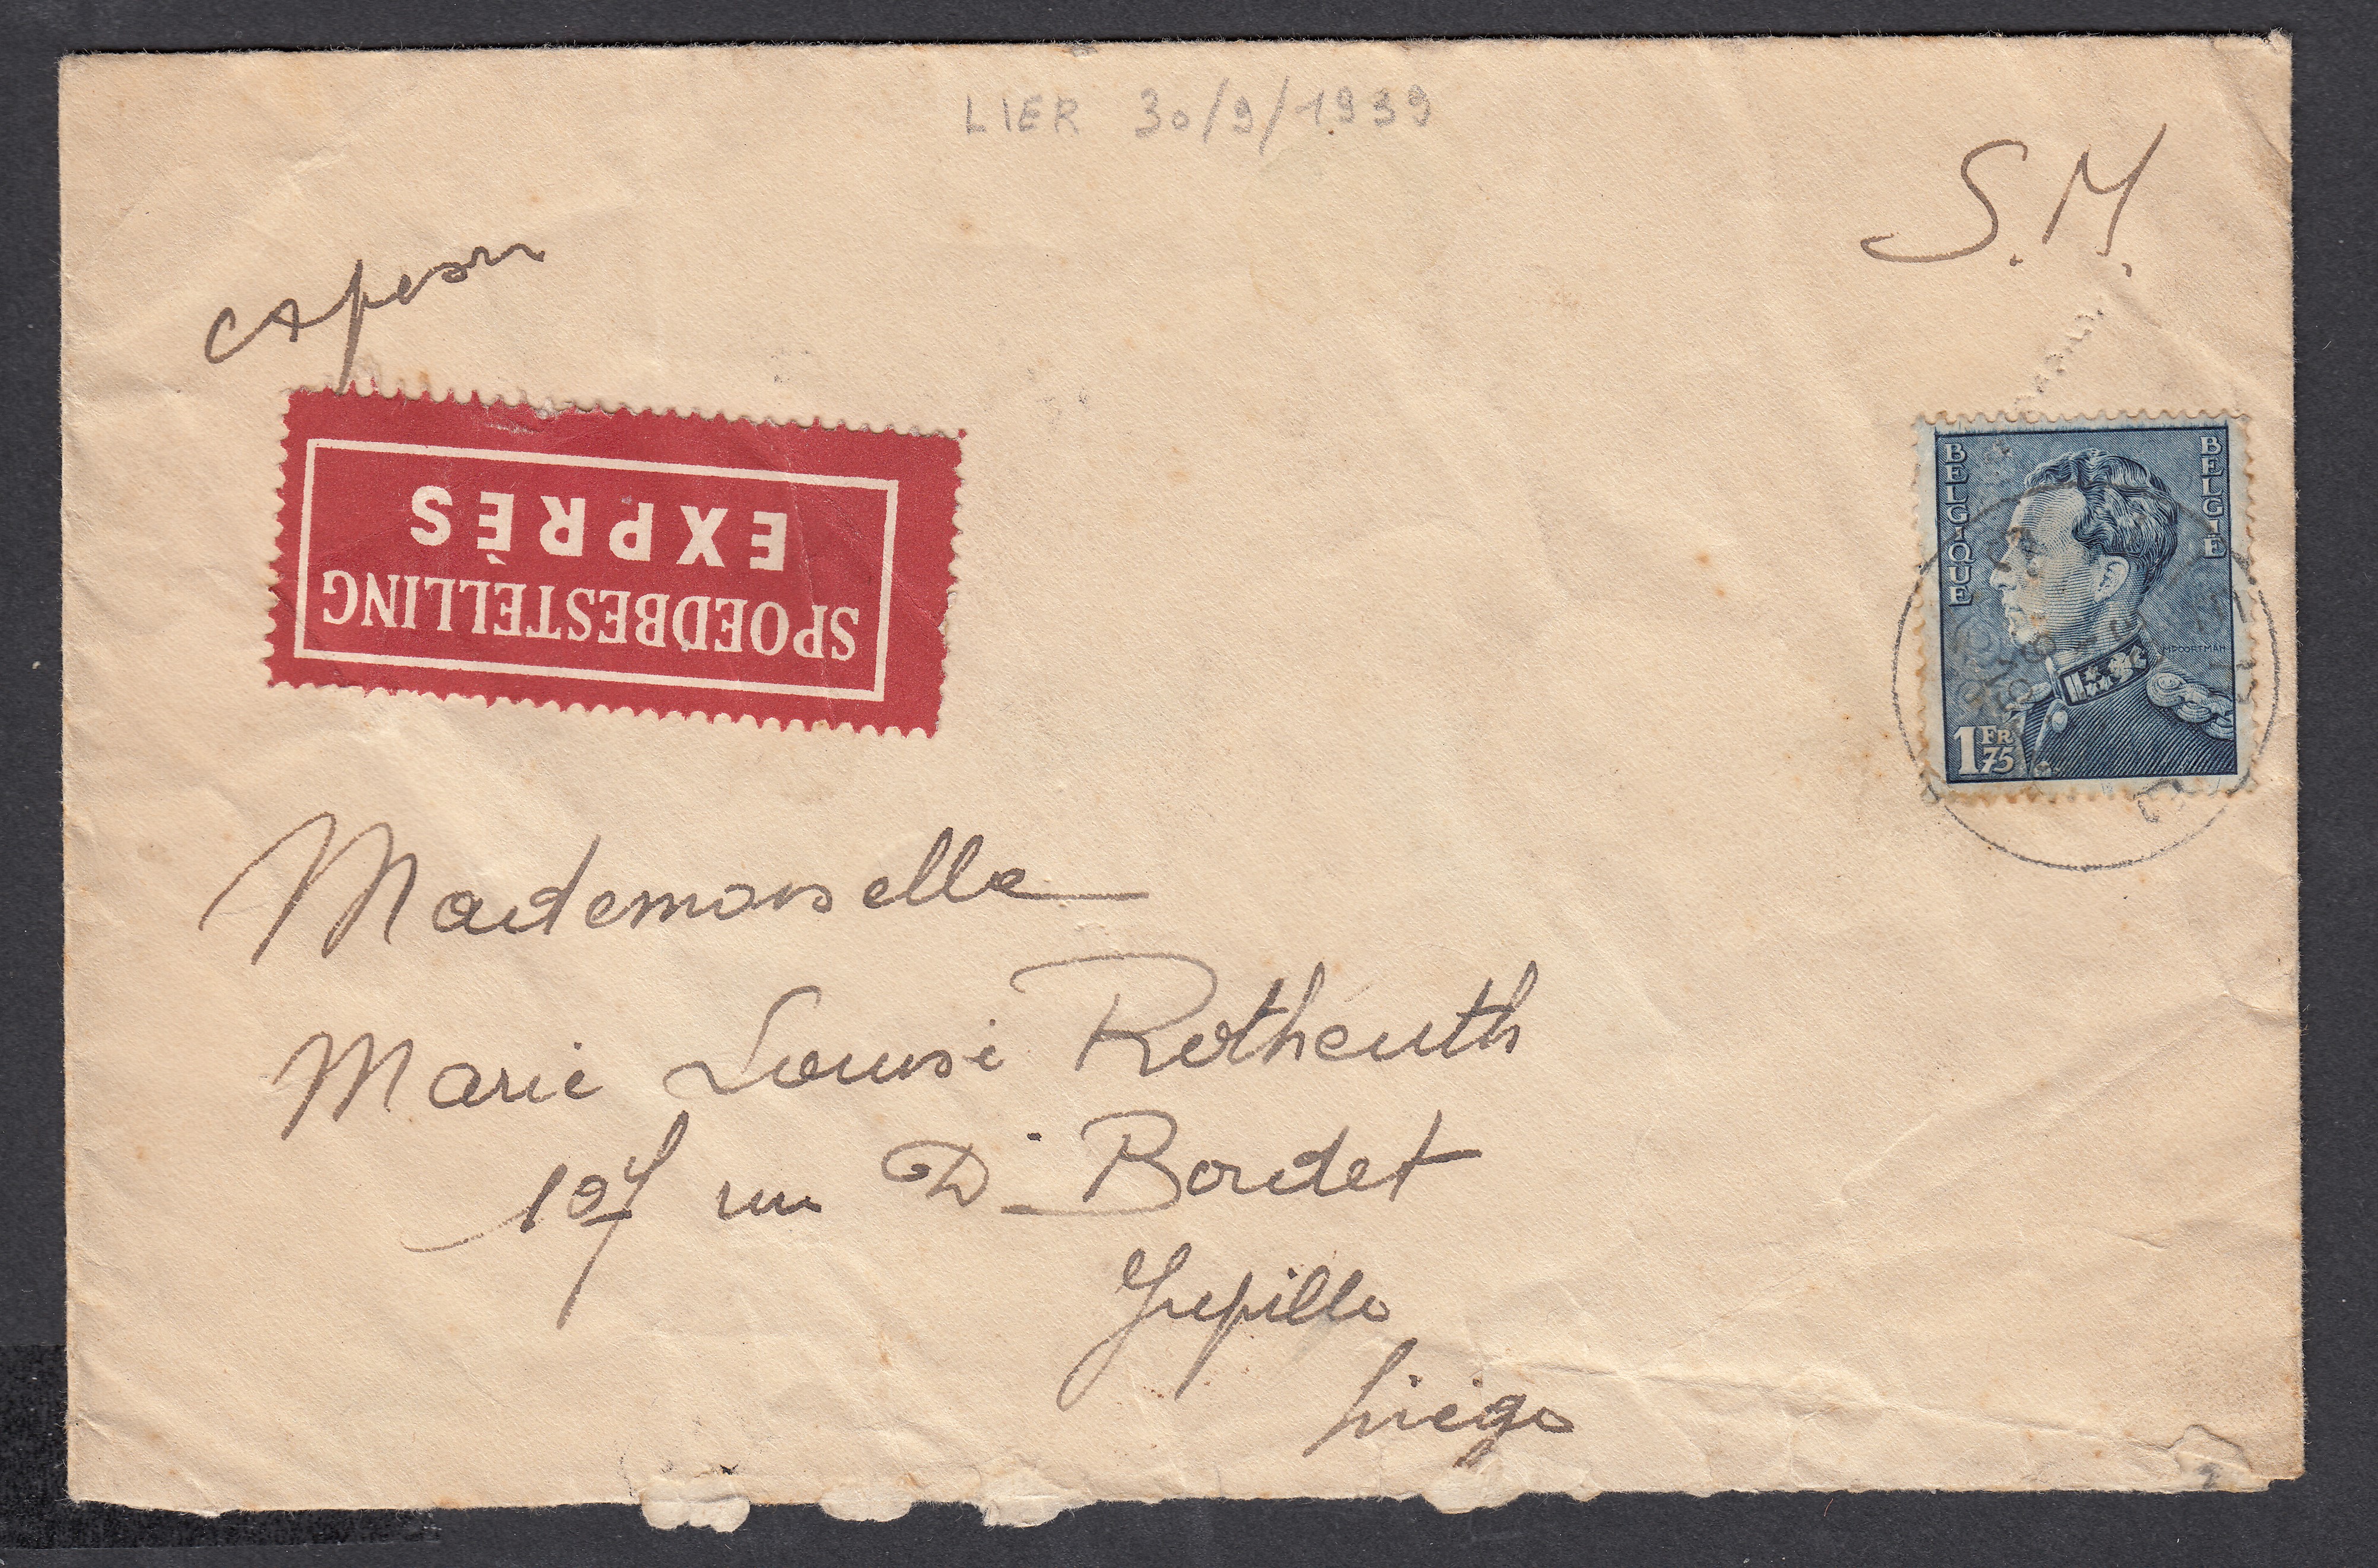 LIER 30/9/1939
S.M.
SPOEDBESTELLING
EXPRÈS
BELGIQUE
BELGIË
MPOORTMAN
1 FR 75
Mademoiselle
Marie Louise Rotheuth
107 rue Dr Bordet
Jupille
Liège